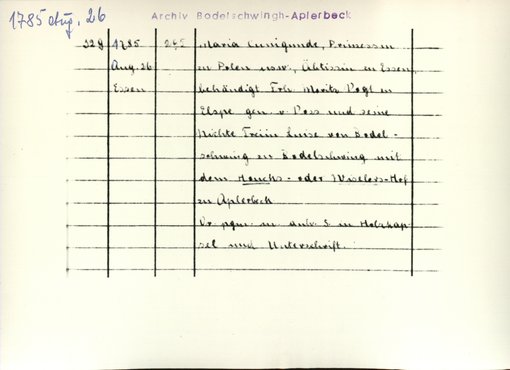 1785 Aug. 26
Archiv Bodelschwingh-Aplerbeck
329 1785 245 Maria Cunigunde, Prinzessin
Aug. 26 in Polen usw., Äbtissin in Essen,
Essen behändigt Frh. Moritz Vogt in
Elspe gen. v. Voss und seine
Nichte Freiin Luise von Bodel-
schwing zu Bodelschwing mit
dem Mönchs- oder Wiselers-Hof
zu Aplerbeck
Or. pgm. m. anh. S. in Holzkap-
sel und Unterschrift.